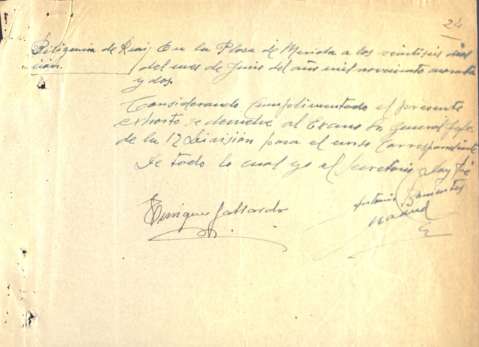 24
Diligencia de Remi- En la Plaza de Merida a los veintiseis dias
sión. del mes de Junio del año mil novecientos cuarenta
y dos.
Considerando cumplimentado el presente
exhorto se devuelve al Excmo Sr General Jefe
de la 12 División para el curso correspondiente
De todo lo cual yo el Secretario doy fé
Enrique Gallardo
Antonio Barrientos